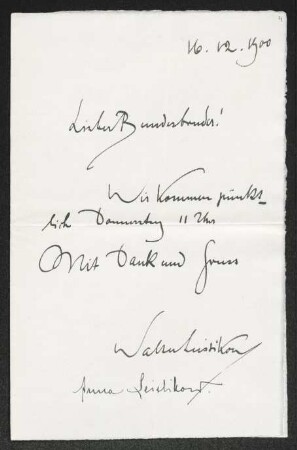 16.12.1900
Lieber Bundesbruder!
Wir kommen pünkt-
lich Donnerstag 11 Uhr
Mit Dank und Gruss
Walter Leistikow
Anna Leistikow.